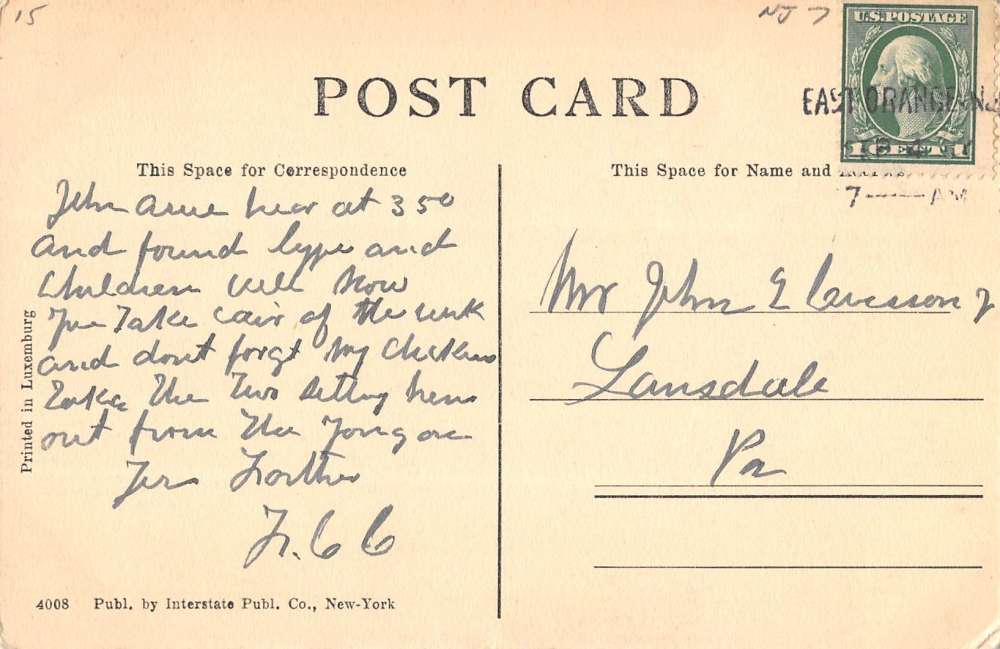 15
NJ 7
U.S. POSTAGE
1 CENT 1
EAST ORANGE, N.J.
7 AM
POST CARD
This Space for Correspondence
This Space for Name and
John arive hear at 3 50
and found and
Children well Now
You Take cair of the
and dont forgt my Chickens
Take The Two Setting hens
out from the
Your
Mr John E
Lansdale
Pa
Printed in Luxemburg
4008 Publ. by Interstate Publ. Co., New-York